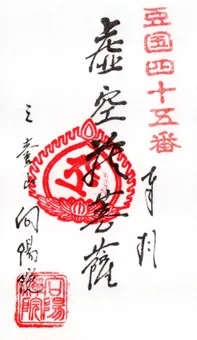 豆国四十五番
奉拝
虚空蔵菩薩
向陽院
向陽院